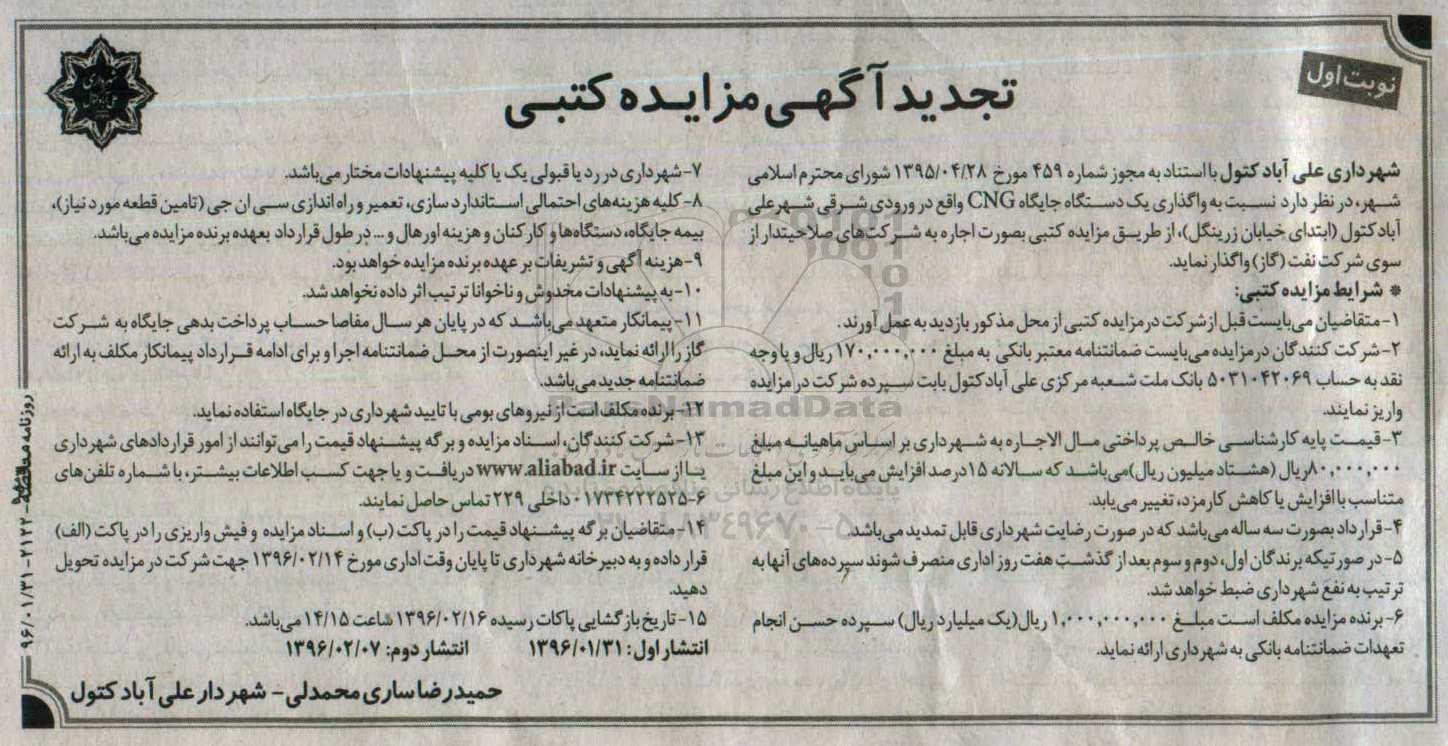 نوبت اول
تجدید آگهی مزایده کتبی
شهرداری علی آباد کتول با استناد به مجوز شماره ۴۵۹ مورخ ۱۳۹۵/۰۴/۲۸ شورای محترم اسلامی
شهر، در نظر دارد نسبت به واگذاری یک دستگاه جایگاه CNG واقع در ورودی شرقی شهر علی
آباد کتول (ابتدای خیابان زرینگل)، از طریق مزایده کتبی بصورت اجاره به شرکت‌های صلاحیتدار از
سوی شرکت نفت (گاز) واگذار نماید.
* شرایط مزایده کتبی:
۱- متقاضیان می‌بایست قبل از شرکت در مزایده کتبی از محل مذکور بازدید به عمل آورند.
۲- شرکت کنندگان در مزایده می‌بایست ضمانتنامه معتبر بانکی به مبلغ ۱۷۰,۰۰۰,۰۰۰ ریال و یا وجه
نقد به حساب ۵۰۳۱۰۴۲۰۶۹ بانک ملت شعبه مرکزی علی آباد کتول بابت سپرده شرکت در مزایده
واریز نمایند.
۳- قیمت پایه کارشناسی خالص پرداختی مال الاجاره به شهرداری بر اساس ماهیانه مبلغ
۸۰,۰۰۰,۰۰۰ ریال (هشتاد میلیون ریال) می‌باشد که سالانه ۱۵ درصد افزایش می‌یابد و این مبلغ
متناسب با افزایش یا کاهش کارمزد، تغییر می‌یابد.
۴- قرارداد بصورت سه ساله می‌باشد که در صورت رضایت شهرداری قابل تمدید می‌باشد.
۵- در صورتیکه برندگان اول، دوم و سوم بعد از گذشت هفت روز اداری منصرف شوند سپرده‌های آنها به
ترتیب به نفع شهرداری ضبط خواهد شد.
۶- برنده مزایده مکلف است مبلغ ۱,۰۰۰,۰۰۰,۰۰۰ ریال (یک میلیارد ریال) سپرده حسن انجام
تعهدات ضمانتنامه بانکی به شهرداری ارائه نماید.
۷- شهرداری در رد یا قبولی یک یا کلیه پیشنهادات مختار می‌باشد.
۸- کلیه هزینه‌های احتمالی استاندارد سازی، تعمیر و راه اندازی سی ان جی (تامین قطعه مورد نیاز)،
بیمه جایگاه، دستگاه‌ها و کارکنان و هزینه اورهال و ... در طول قرارداد بعهده برنده مزایده می‌باشد.
۹- هزینه آگهی و تشریفات بر عهده برنده مزایده خواهد بود.
۱۰- به پیشنهادات مخدوش و ناخوانا ترتیب اثر داده نخواهد شد.
۱۱- پیمانکار متعهد می‌باشد که در پایان هر سال مفاصا حساب پرداخت بدهی جایگاه به شرکت
گاز را ارائه نماید، در غیر اینصورت از محل ضمانتنامه اجرا و برای ادامه قرارداد پیمانکار مکلف به ارائه
ضمانتنامه جدید می‌باشد.
۱۲- برنده مکلف است از نیروهای بومی با تایید شهرداری در جایگاه استفاده نماید.
۱۳- شرکت کنندگان، اسناد مزایده و برگه پیشنهاد قیمت را می‌توانند از امور قراردادهای شهرداری
یا از سایت www.aliabad.ir دریافت و یا جهت کسب اطلاعات بیشتر، با شماره تلفن‌های
۰۱۷۳۴۲۲۲۵۲۵-۶ داخلی ۲۲۹ تماس حاصل نمایند.
۱۴- متقاضیان برگه پیشنهاد قیمت را در پاکت (ب) و اسناد مزایده و فیش واریزی را در پاکت (الف)
قرار داده و به دبیرخانه شهرداری تا پایان وقت اداری مورخ ۱۳۹۶/۰۲/۱۴ جهت شرکت در مزایده تحویل
دهید.
۱۵- تاریخ بازگشایی پاکات رسیده ۱۳۹۶/۰۲/۱۶ ساعت ۱۴/۱۵ می‌باشد.
انتشار اول: ۱۳۹۶/۰۱/۳۱ انتشار دوم: ۱۳۹۶/۰۲/۰۷
حمیدرضا ساری محمدلی - شهردار علی آباد کتول
ParsNamadData
روزنامه مناقصه - ۲۱۲۲ - ۹۶/۰۱/۳۱